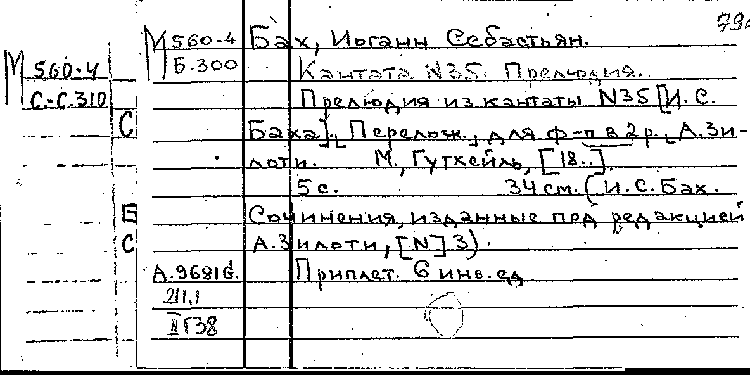 М 560-4
С.-С.310
С
Б
С
М 560-4
Б.300
Бах, Иоганн Себастьян.
Кантата N35. Прелюдия.
Прелюдия из кантаты N35 [И.С.
Баха]. Перелож. для ф-п в 2 р. А.Зи-
лоти. М., Гутхейль, [18..].
5 с. 34 см. (И.С.Бах.
Сочинения, изданные под редакцией
А.Зилоти, [N] 3).
Приплет. 6 инв.ед
211,1
II Г38